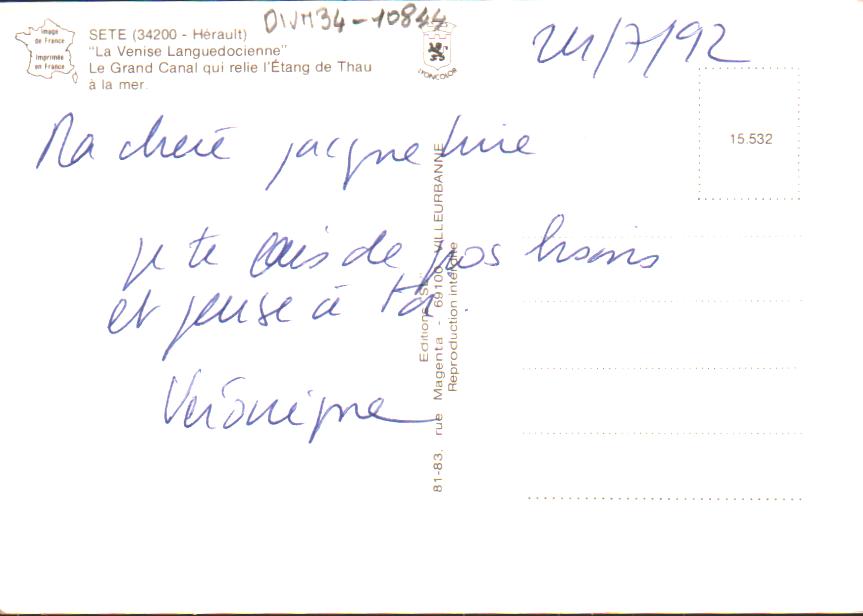 Image
de France
Imprimée
en France
SETE (34200 - Hérault)
"La Venise Languedocienne"
Le Grand Canal qui relie l'Étang de Thau
à la mer.
DIVM34-10844
LYONCOLOR
24/7/92
15.532
Ma chere jacqueline
je te de gros
et pense à toi.
Véronique
Editions
81-83, rue Magenta - 69100 VILLEURBANNE
Reproduction interdite